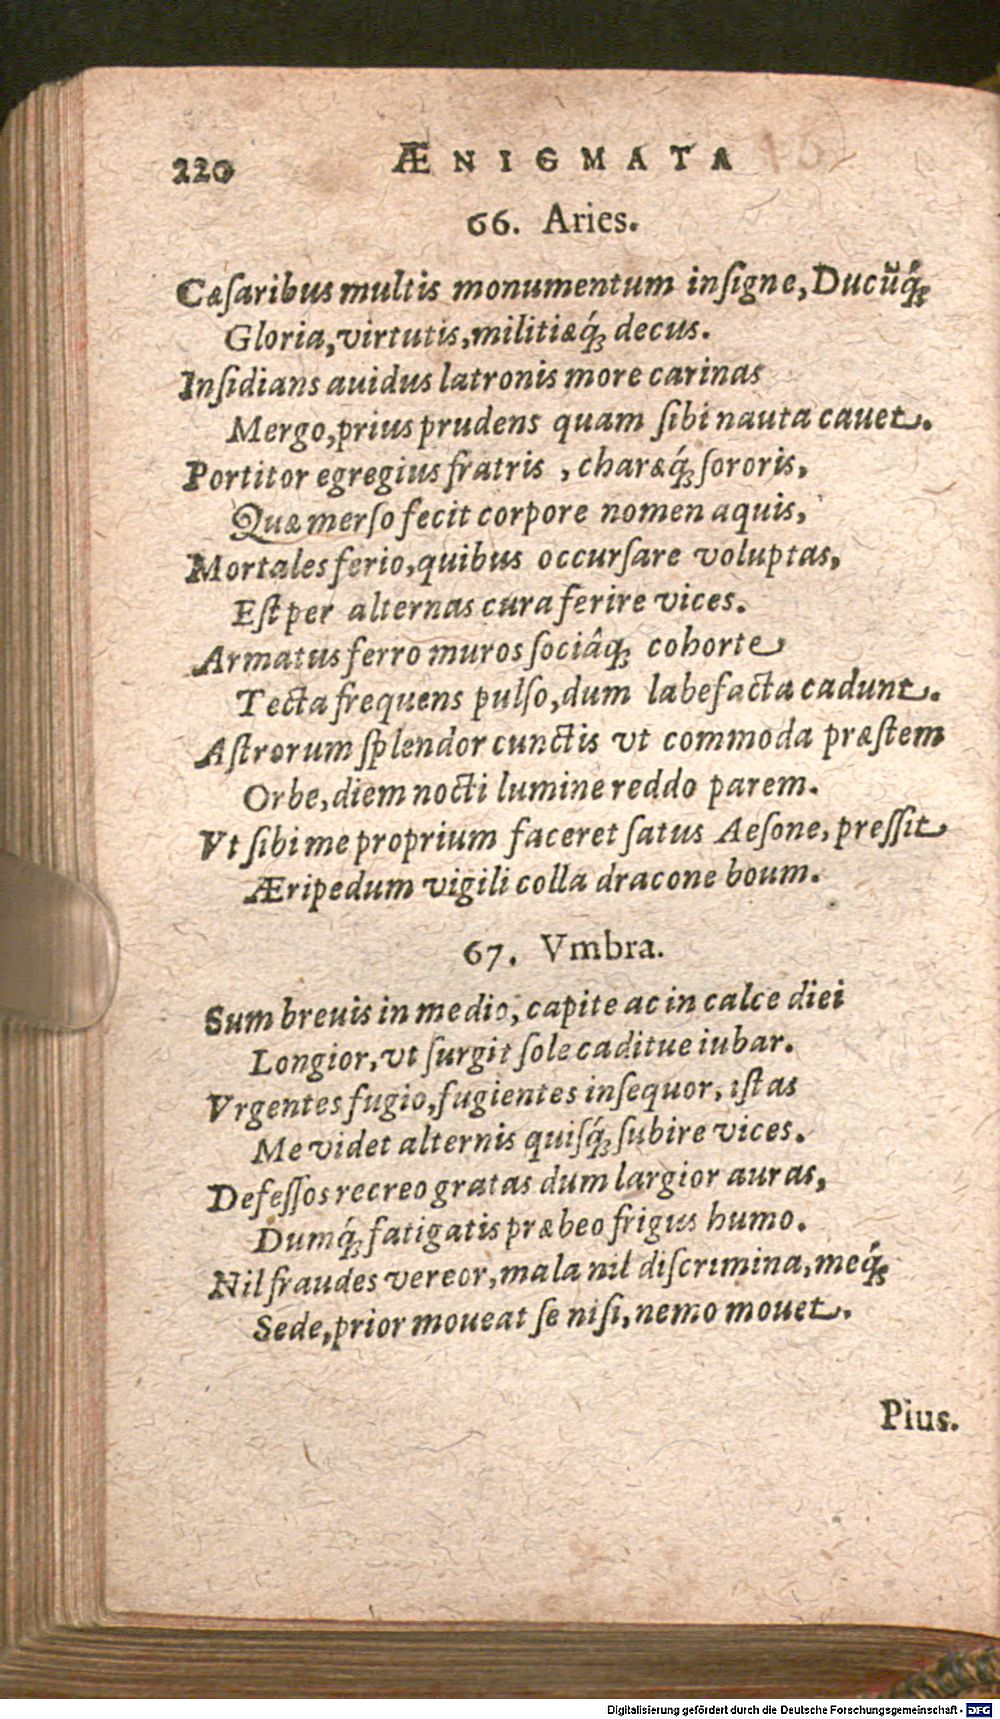 220 ÆNIGMATA
66. Aries.
Cæſaribus multis monumentum inſigne, Ducũq́;
Gloria, virtutis, militiæq́; decus.
Inſidians auidus latronis more carinas
Mergo, prius prudens quam ſibi nauta cauet.
Portitor egregius fratris, charæq́; ſororis,
Quæ merſo fecit corpore nomen aquis,
Mortales ferio, quibus occurſare voluptas,
Eſt per alternas cura ferire vices.
Armatus ferro muros ſociâq; cohorte
Tecta frequens pulſo, dum labefacta cadunt.
Aſtrorum ſplendor cunctis vt commoda præſtem
Orbe, diem nocti lumine reddo parem.
Vt ſibi me proprium faceret ſatus Aeſone, preſſit
Æripedum vigili colla dracone boum.
67. Vmbra.
Sum breuis in medio, capite ac in calce diei
Longior, vt ſurgit ſole caditue iubar.
Vrgentes fugio, fugientes inſequor, iſtas
Me videt alternis quiſq́; ſubire vices.
Defeſſos recreo gratas dum largior auras,
Dumq́; fatigatis præbeo frigus humo.
Nil fraudes vereor, mala nil diſcrimina, meq́;
Sede, prior moueat ſe niſi, nemo mouet.
Pius.
Digitalisierung gefördert durch die Deutsche Forschungsgemeinschaft - DFG